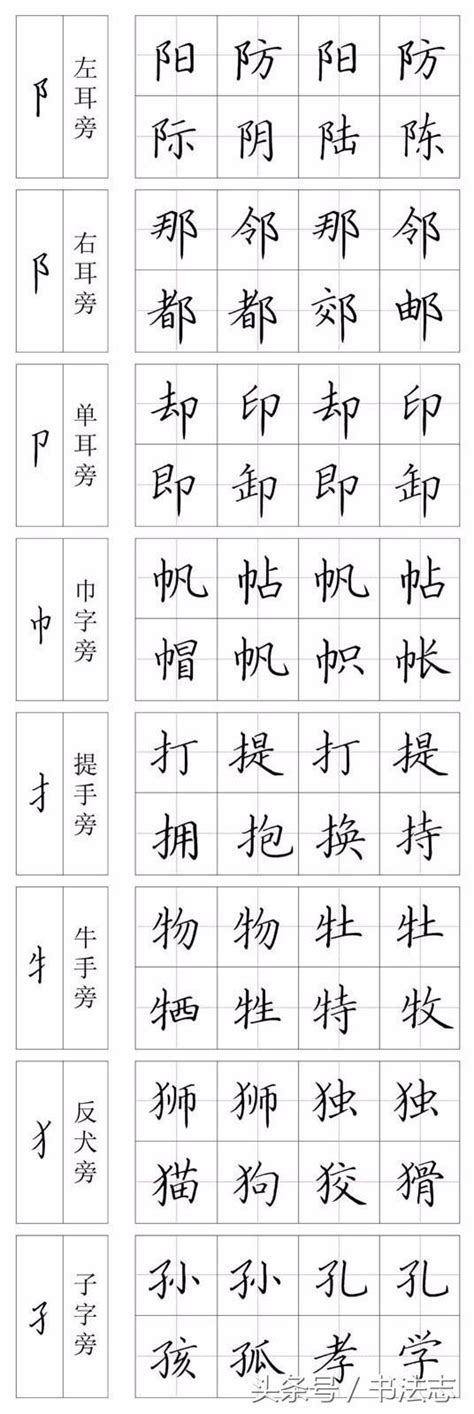 阝 左耳旁 阳 防 阳 防
际 阴 陆 陈
阝 右耳旁 那 邻 那 邻
都 都 郊 邮
卩 单耳旁 却 印 却 印
即 卸 即 卸
巾 巾字旁 帆 帖 帆 帖
帽 帆 帜 帐
扌 提手旁 打 提 打 提
拥 抱 换 持
牜 牛手旁 物 物 牡 牡
牺 牲 特 牧
犭 反犬旁 狮 狮 独 独
猫 狗 狡 猾
孑 子字旁 孙 孙 孔 孔
孩 孤 孝 学
头条号 / 书法志